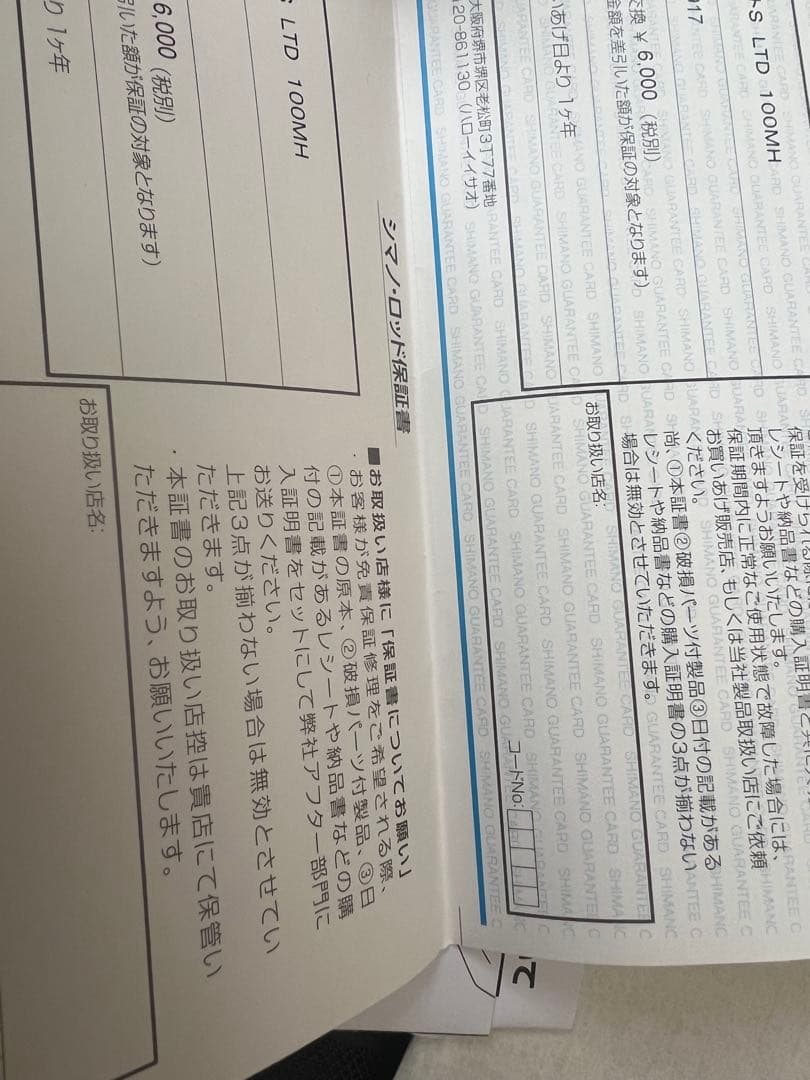 S LTD 100MH
6,000（税別）
引いた額が保証の対象となります）
り 1ヶ年
お取り扱い店名:
シマノ・ロッド保証書
■お取扱い店様に「保証書についてお願い」
・お客様が免責保証修理をご希望される際、
①本証書の原本、②破損パーツ付製品、③日
付の記載があるレシートや納品書などの購
入証明書をセットにして弊社アフター部門に
お送りください。
上記3点が揃わない場合は無効とさせてい
ただきます。
・本証書のお取り扱い店控は貴店にて保管い
ただきますよう、お願いいたします。
S LTD 100MH
017
交換 ¥ 6,000（税別）
金額を差引いた額が保証の対象となります）
いあげ日より 1ヶ年
大阪府堺市堺区老松町3丁77番地
120-861130（ハローイイサオ）
レシートや納品書などの購入証明書と共に
頂きますようお願いいたします。
保証期間内に正常なご使用状態で故障した場合には、
お買いあげ販売店、もしくは当社製品取扱い店にご依頼
ください。
尚、①本証書②破損パーツ付製品③日付の記載がある
レシートや納品書などの購入証明書の3点が揃わない
場合は無効とさせていただきます。
お取り扱い店名:
コードNo.
SHIMANO GUARANTEE CARD
2